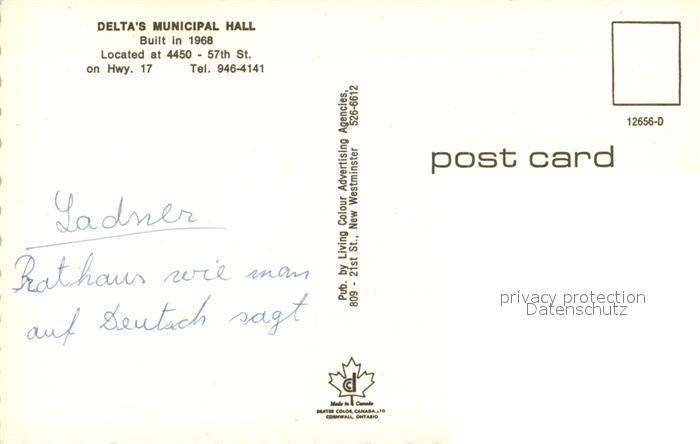 DELTA'S MUNICIPAL HALL
Built in 1968
Located at 4450 - 57th St.
on Hwy. 17 Tel. 946-4141
12656-D
post card
Pub. by Living Colour Advertising Agencies,
809 - 21st St., New Westminster 526-6612
Ladner
Rathaus wie man
auf Deutsch sagt
privacy protection
Datenschutz
Made in Canada
DEXTER COLOR, CANADA, LTD
CORNWALL, ONTARIO